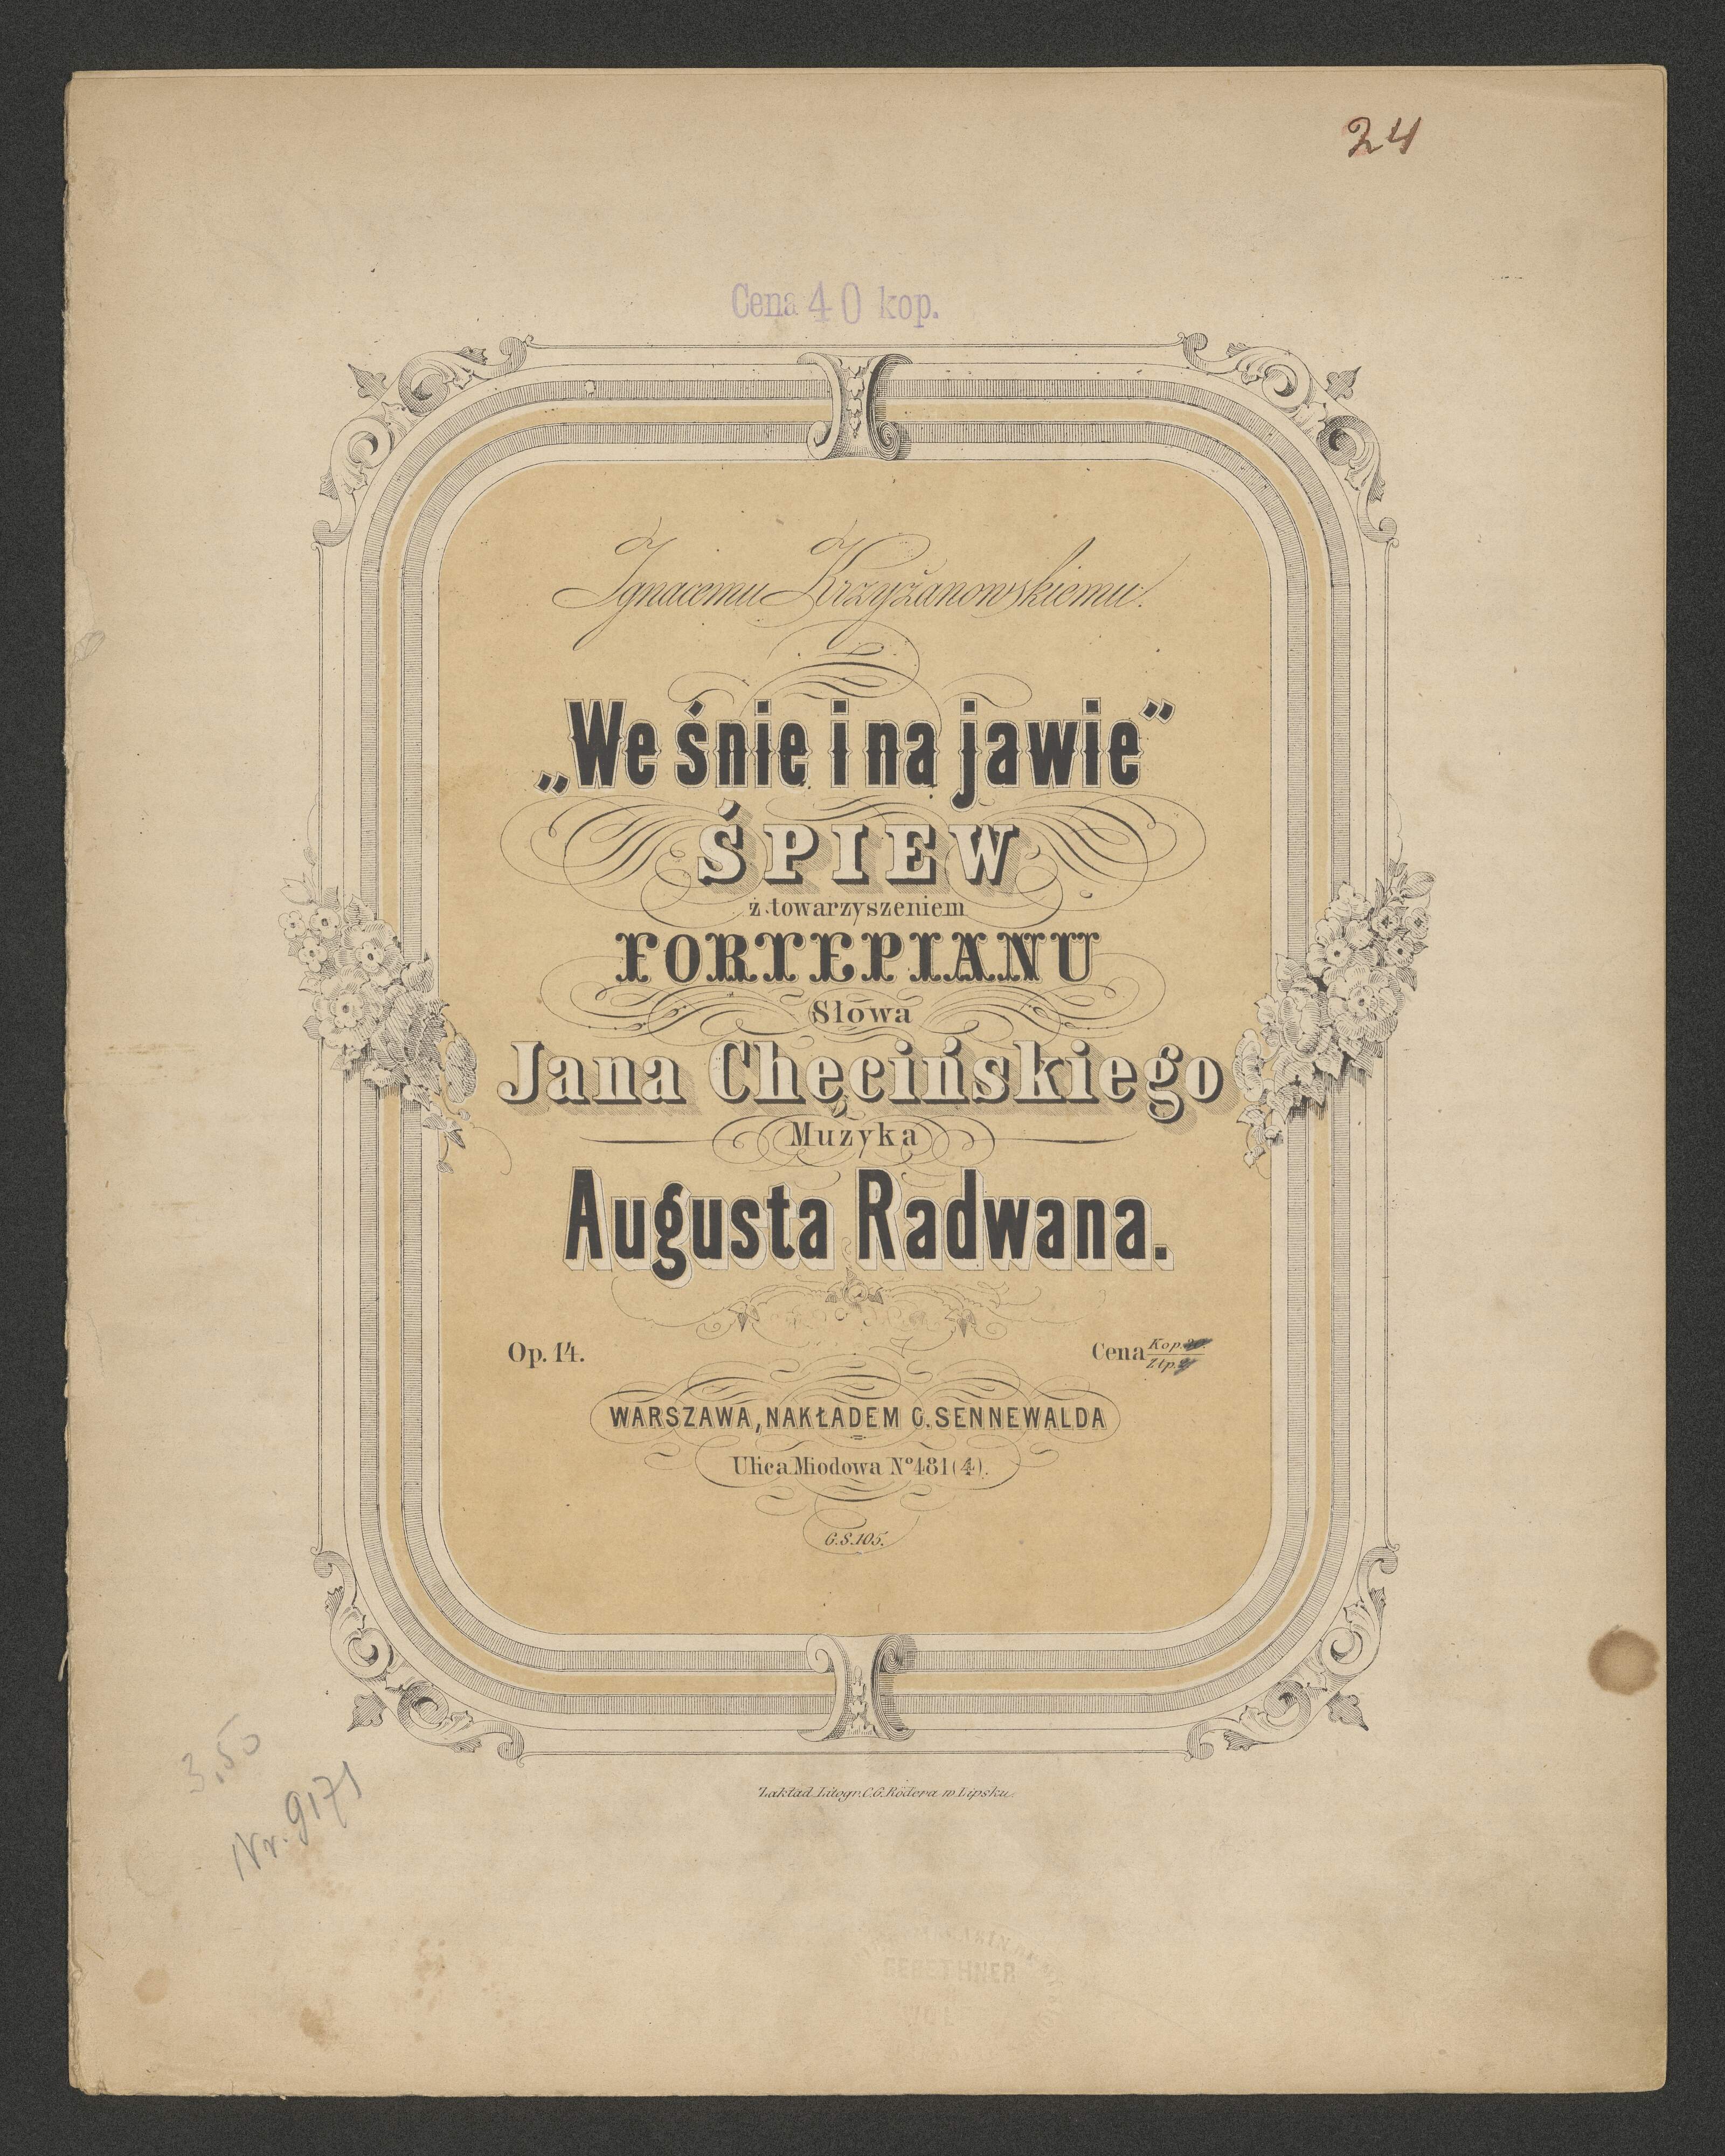 24
Cena 40 kop.
Ignacemu Krzyżanowskiemu.
„We śnie i na jawie"
ŚPIEW
z towarzyszeniem
FORTEPIANU
Słowa
Jana Chęcińskiego
Muzyka
Augusta Radwana.
Op. 14.
Cena Kop.
Złp.
WARSZAWA, NAKŁADEM G. SENNEWALDA
Ulica Miodowa Nº 481 (4).
G.S.105.
Zakład Litogr. C.G. Rödera w Lipsku.
3,50
Nr. 9171
GEBETHNER